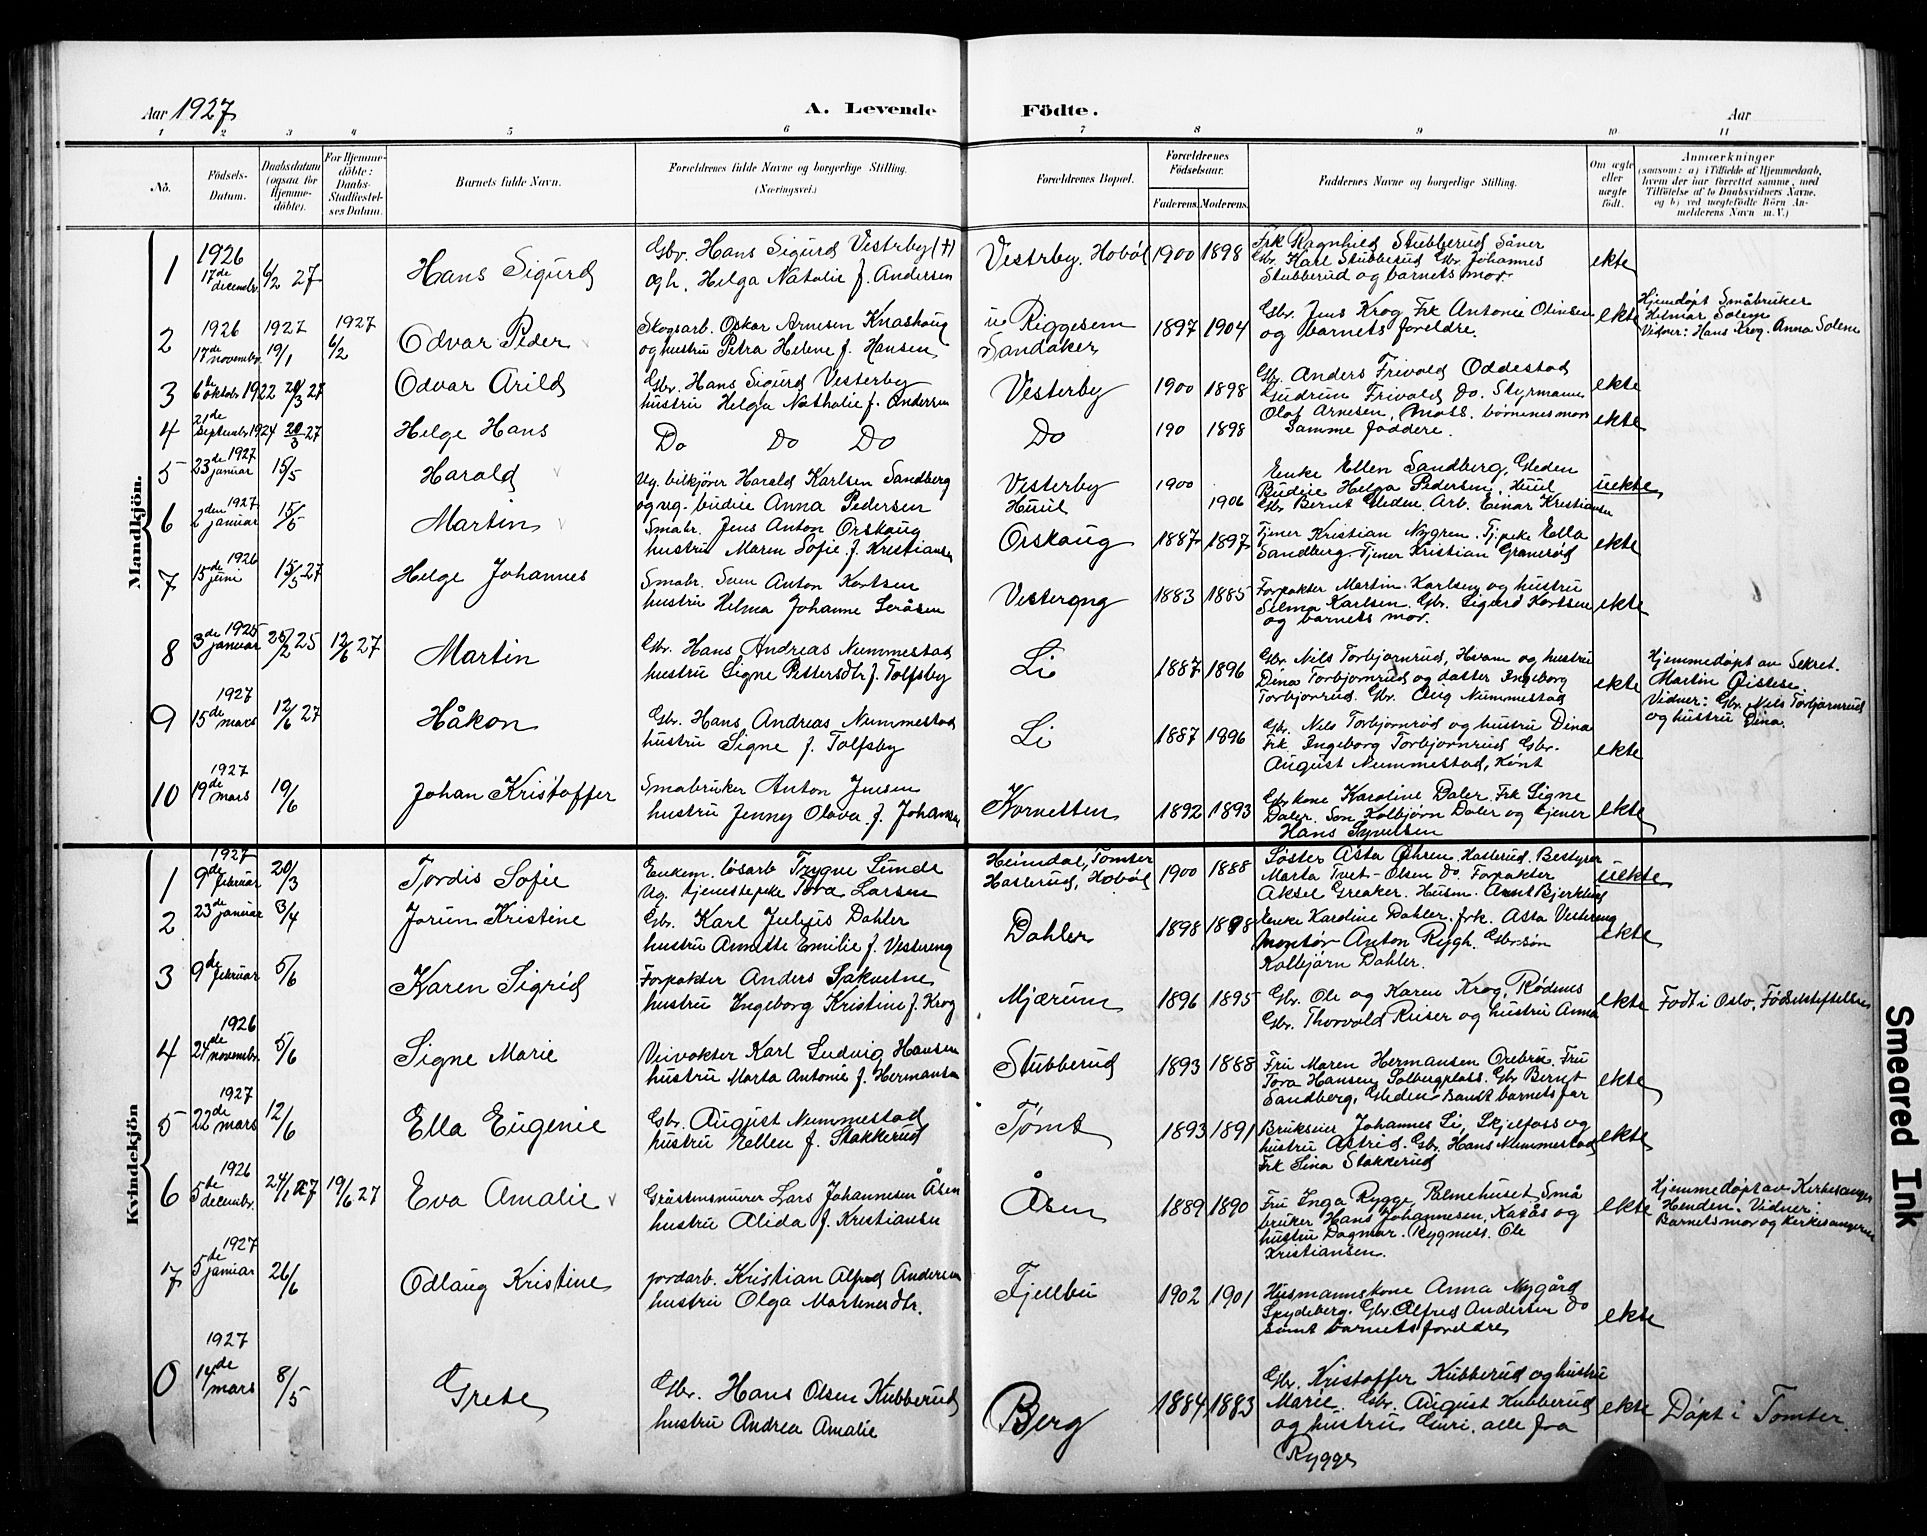 Aar 1927
A. Levende Födte.
Aar
1 2 3 4 5 6 7 8 9 10 11
No.
Födsels-Datum.
Daabsdatum (ogsaa for Hjemme-döbte).
For Hjemme-döbte: Daabs-Stadfæstel-ses Datum.
Barnets fulde Navn.
Forældrenes fulde Navne og borgerlige Stilling.
(Næringsvei.)
Forældrenes Bopæl.
Forældrenes Födselsaar.
Faderens. Moderens.
Faddernes Navne og borgerlige Stilling.
Om ægte eller uægte födt.
Anmærkninger
(saasom: a) i Tilfælde af Hjemmedaab,
hvem der har forrettet samme, med
Tilföielse af to Daabsvidners Navne,
og b) ved uægtefödte Börn An-
melderens Navn m. V.)
Mandkjön.
1 1926 17de decembr. 6/2 27 Hans Sigurd
Gbr. Hans Sigurd Vestrby (†)
og h. Helga Natalie f. Andersen
Vestrby. Hobøl 1900 1898
Frk Ragnhild Stubberud Såner
Gbr. Karl Stubberud Gbr. Johannes
Stubberud og barnets mor.
ekte
2 1926 17de novembr. 1927 19/1 1927 6/2 Odvar Peder
Skogsarb. Oskar Arnesen Knashaug
og hustru Petra Helene f. Hansen
u Riggesem
Sandaker 1897 1904
Gbr. Jens Krog Frk Antonie Olinsen
og barnets foreldre.
ekte
Hjemdøpt Småbruker
Hilmar Solem
Vidner: Hans Krog. Anna Solem
3 6te oktobr 1922 20/3 27 Odvar Arild
Gbr. Hans Sigurd Vesterby
hustru Helga Nathalie f. Andersen
Vesterby 1900 1898
Gbr. Anders Frivold Oddestad
Gudrun Frivold Do. Styrmann
Olaf Arnesen, Moss. børnenes mor
ekte
4 21de septembr 1924 20/3 27 Helge Hans
Do Do Do
Do 190 1898
Samme faddere.
ekte
5 23de 1927 januar 15/5 Harald
Ug. bilkjører Harald Karlsen Sandberg
og ug. budeie Anna Pedersen
Vesterby
Huul 1900 1906
Enke Ellen Sandberg, Gleden
Budeie Helga Pedersen, Huul
Gbr Bernt Gleden. Arb. Einar Kristiansen
uekte
6 2den 1927 januar 15/5 Martin
Småbr. Jens Anton Orskaug
hustru Maren Sofie f. Kristiansen
Orskaug 1887 1897
Tjener Kristian Nygren. Tj.pike Ella
Sandberg Tjener Kristian Granerød
ekte
7 15de 1926 juni 15/5 27 Helge Johannes
Småbr. Sven Anton Kortsen
hustru Hilma Johanne Seråsen
Vestereng 1883 1885
Forpakter Martin Karlsen og hustru
Selma Karlsen. Gbr. Sigurd Kortsen
og barnets mor.
ekte
8 3de 1925 januar 25/2 25 12/6 27 Martin
Gbr. Hans Andreas Nummestad
hustru Signe Pettersdtr f. Tolfsby
Li 1887 1896
Gbr. Nils Torbjørnrud, Hvam og hustru
Dina Torbjørnrud og datter Ingeborg
Torbjørnrud. Gbr. Aug Nummestad
ekte
Hjemmedøpt av Sekret.
Martin Øistese.
Vidner: Gbr. Nils Torbjørnrud
og hustru Dina.
9 1927 15de mars 12/6 27 Håkon
Gbr. Hans Andreas Nummestad
hustru Signe f. Tolfsby
Li 1887 1896
Gbr. Nils Torbjørnrød og hustru Dina
Frk Ingeborg Torbjørnrud Gbr.
August Nummestad,
ekte
10 1927 19de mars 19/6 Johan Kristoffer
Småbruker Anton Jensen
hustru Jenny Olava f. Johansen
Kornetten 1892 1893
Gbrkone Karoline Daler. Frk Signe
Daler. Søn Kolbjørn Daler og tjener
Hans Syvertsen
ekte
Kvindekjön
1 1927 9de februar 20/3 Tordis Sofie
Enkem. løsarb Trygve Lunde
Ug. tjenestepike Tora Larsen
Heimdal, Tomter
Haslerud, Hobøl 1900 1888
Søster Asta Øhren. Haslerud. Bestyrer
Marta Tvet-Olsen Do. Forpakter
Aksel Greaker. Husm. Arnt Bjerklund
uekte
2 23de januar 3/4 Jorun Kristine
Gbr. Karl Julius Dahler
hustru Annette Emilie f. Vestereng
Dahler 1898 1898
Enke Karoline Dahler. frk. Asta Vestereng
Montør Anton Rygh. Gbrsøn
Kolbjørn Dahler.
ekte
3 9de februar 5/6 Karen Sigrid
Forpakter Anders Spakvetne
hustru Ingeborg Kristine f. Krog
Mjærum 1896 1895
Gbr. Ole og Karen Krog, Rødenes
Gbr. Thorvald Kriser og hustru Anna
ekte
Født i Oslo. Fødselsstiftelsen
4 1926 24de novembr. 5/6 Signe Marie
Veivokter Karl Ludvig Hansen
hustru Marta Antonie f. Hermansen
Stubberud 1893 1888
Fru Maren Hermansen Orebru. Fru
Tora Hansen, Solbergplass. Gbr Bernt
Sandberg, Gleden samt barnets far
ekte
5 1927 22de mars 12/6 Ella Eugenie
Gbr. August Nummestad
hustru Ellen f. Stokkerud
Tømt 1893 1891
Brukseier Johannes Li, Skjelfoss og
hustru Astrid. Gbr. Hans Nummestad
Frk Lina Stokkerud
ekte
6 1926 5te decembr. 24/1 27 19/6 27 Eva Amalie
Gråstensmurer Lars Johannesen Åsen
hustru Alida f. Kristiansen
Åsen 1889 1890
Fru Inga Rygge, Palmehuset, Små
bruker Hans Johannesen, Kasås og
hustru Dagmar. Rygmess. Ole
Kristiansen.
ekte
Hjemmedøpt av Kirkesanger
Henden. Vidner.
Barnets mor og kirkesangeren
7 1927 5te januar 26/6 Odlaug Kristine
Jordarb. Kristian Alfred Andersen
hustru Olga Martinesdtr.
Fjellbu 1902 1901
Husmannskone Anna Nygård
Spydeberg. Gbr. Alfred Andersen Do
samt barnets foreldre
ekte
0 1927 14de mars 8/5 Grete
Gbr. Hans Olsen Kubberud
hustru Andrea Amalie
Berg 1884 1883
Gbr. Kristoffer Kubberud og hustru
Marie. Gbr. August Kubberud
og hustru Guri. alle fra
Rygge
ekte
Døpt i Tomter.
Smeared Ink